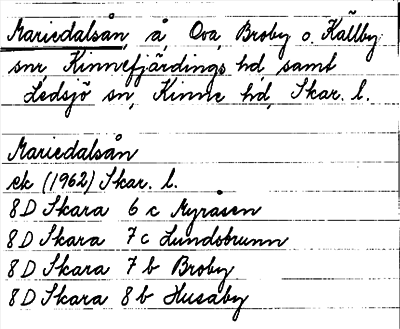 Mariedalsån, å, Ova, Broby o. Källby
snr, Kinnefjärdings hd, samt
Ledsjö sn, Kinne hd, Skar. l.
Mariedalsån
ek (1962) Skar. l.
8D Skara 6 c Myråsen
8D Skara 7 c Lundsbrunn
8D Skara 7 b Broby
8D Skara 8 b Husaby